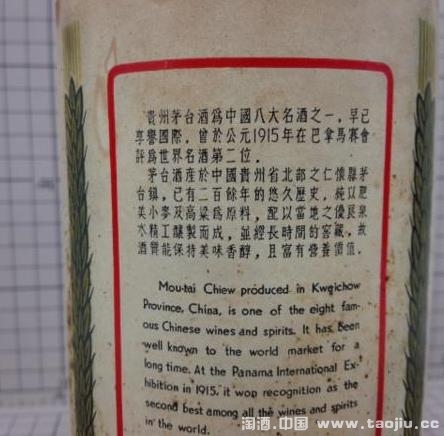 貴州茅台酒爲中國八大名酒之一，早已
享譽國際，曾於公元1915年在巴拿馬賽會
評爲世界名酒第二位．
茅台酒產於中國貴州省北部之仁懷縣茅
台鎮，已有二百餘年的悠久歷史，純以肥
美小麥及高粱爲原料，配以當地之優良泉
水精工釀製而成，並經長時間的窖藏，故
酒質能保持美味香醇，且富有營養價值．
Mou-tai Chiew produced in Kweichow
Province, China, is one of the eight fam-
ous Chinese wines and spirits. It has been
well known to the world market for a
long time. At the Panama International Ex-
hibition in 1915, it won recognition as the
second best among all the wines and spirits
in the world.
淘酒.中国 www.taojiu.cc